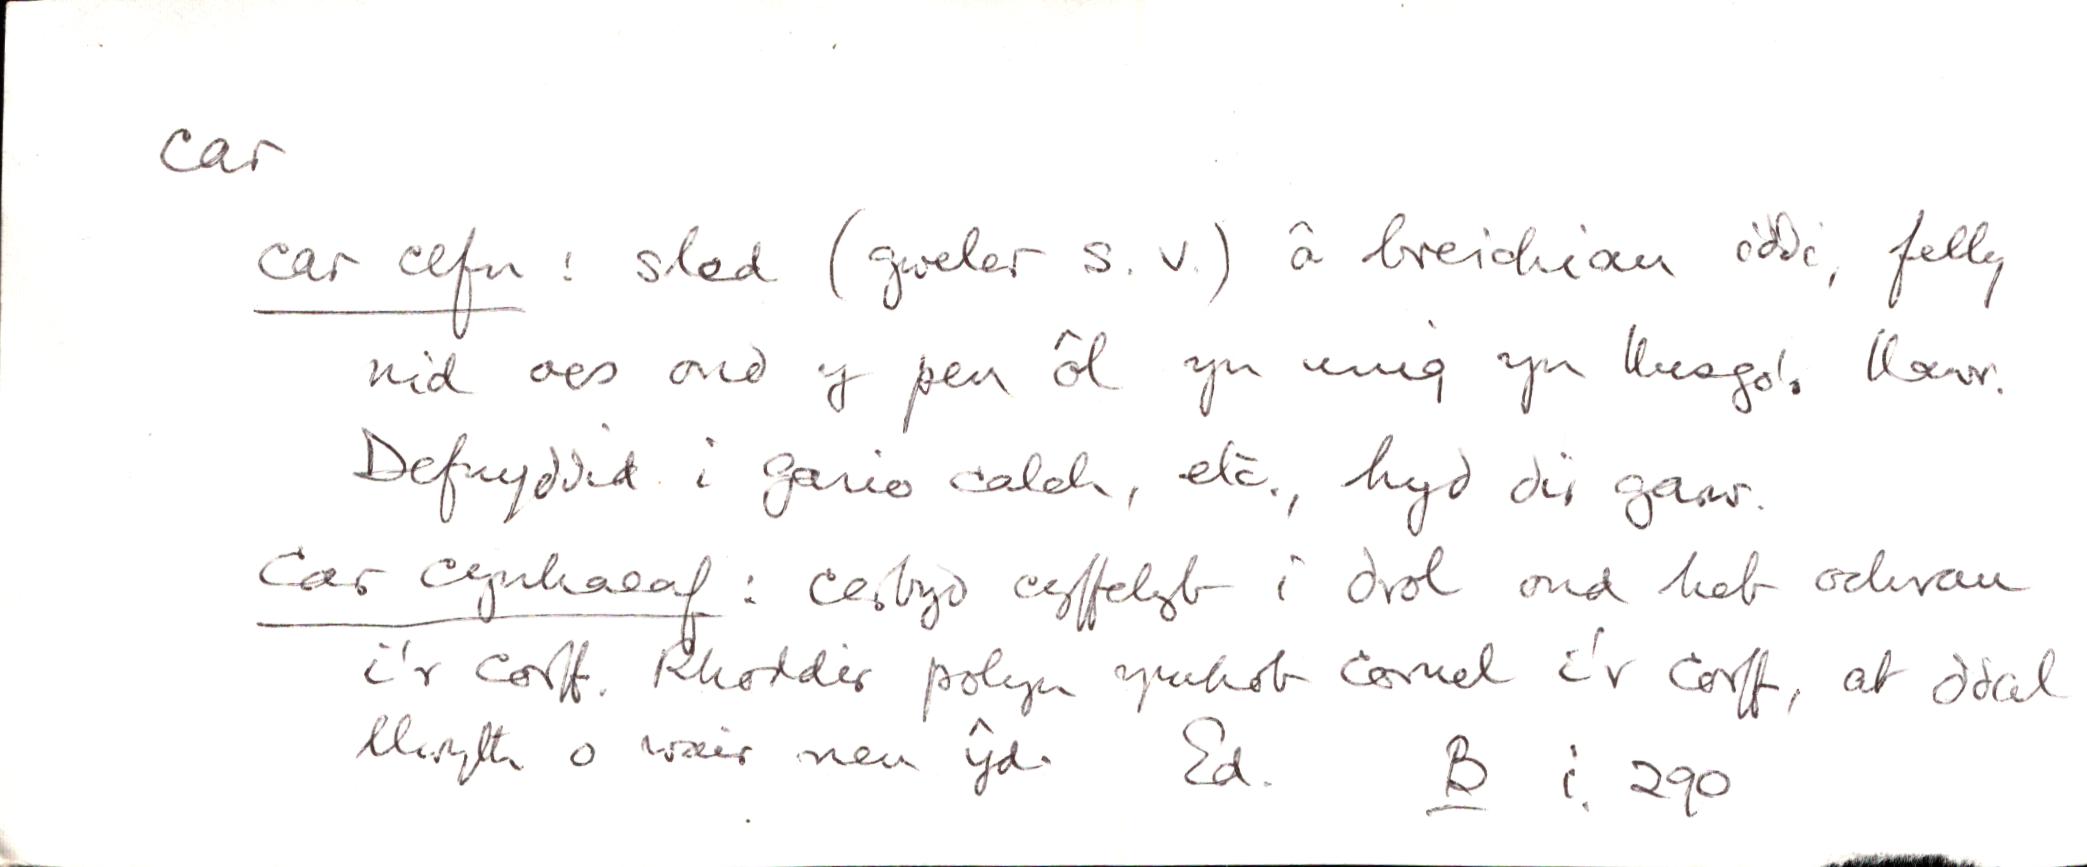 car
car cefn : sled (gweler s.v.) â breichiau iddi, felly
nid oes ond y pen ôl yn unig yn llusgo'r llawr.
Defnyddid i gario calch, etc., hyd dir garw.
Car cynhaeaf : cerbyd cyffelyb i drol ond heb ochrau
i'r corff. Rhoddir polyn ymhob cornel i'r corff, at ddal
llwyth o wair neu ŷd. Ed. B i. 290